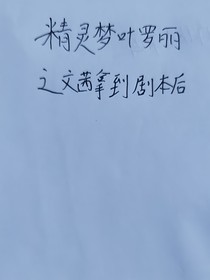 精灵梦叶罗丽
之文茜拿到剧本后